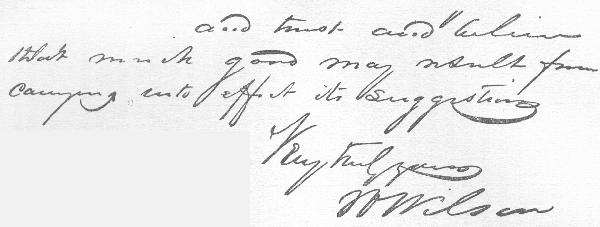 and trust and believe
that much good may result from
carrying into effect its suggestions
Very truly yours
W Wilson